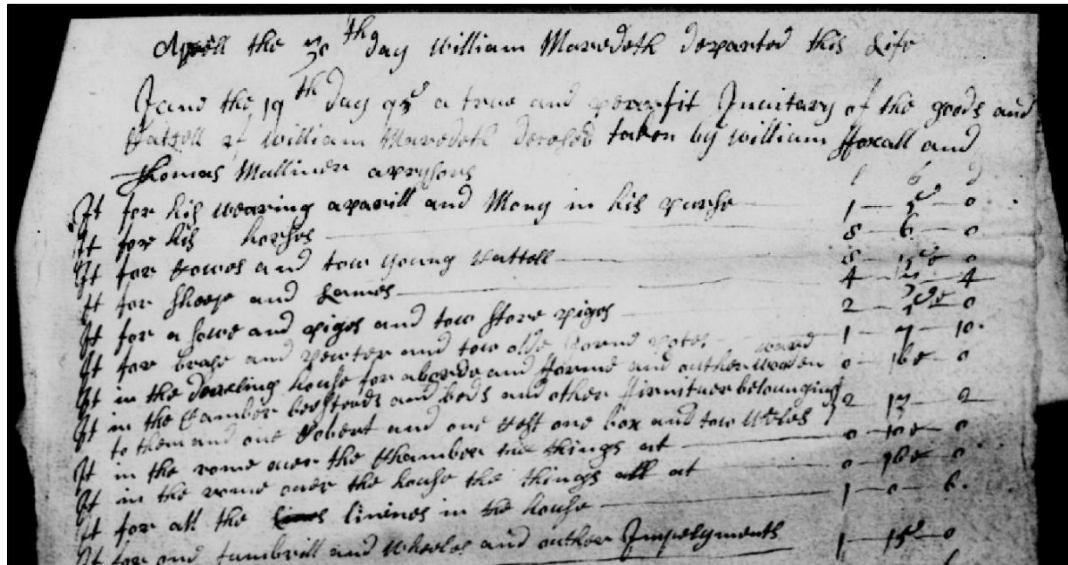 Aprell the 30th day William Maredeth departed this Life
Jand the 19th day 95 a true and perrfit Invitary of the goods and
Cattell of William Maredeth desesed taken by William ffoxall and
Thomas Mulliner apprysors
It for his wearing aparill and Mony in his purse 1 — 5 — 0
It for his horses 5 — 6 — 0
It for Cowes and tow young Cattell
It for Sheepe and Lames 4 — — 4
It for a sowe and piges and tow store piges 2 — — 0
It for brase and pewter and tow olde potes 1 — 7 — 10
It in the dweling house for a borde and forme and outher woden ward 0 — 16 — 0
It in the Camber bedsteads and beds and other firnituer belounging
to them and one Cobert and one Chest one box and tow wheles 2 — 13 — 2
It in the rome over the Chamber the things at 0 — 10 — 0
It in the rome over the house the things all at 0 — 16 — 0
It for all the linines in the house 1 — 0 — 6
It for one tumbrill and wheles and outher Impelyments 1 — 15 — 0